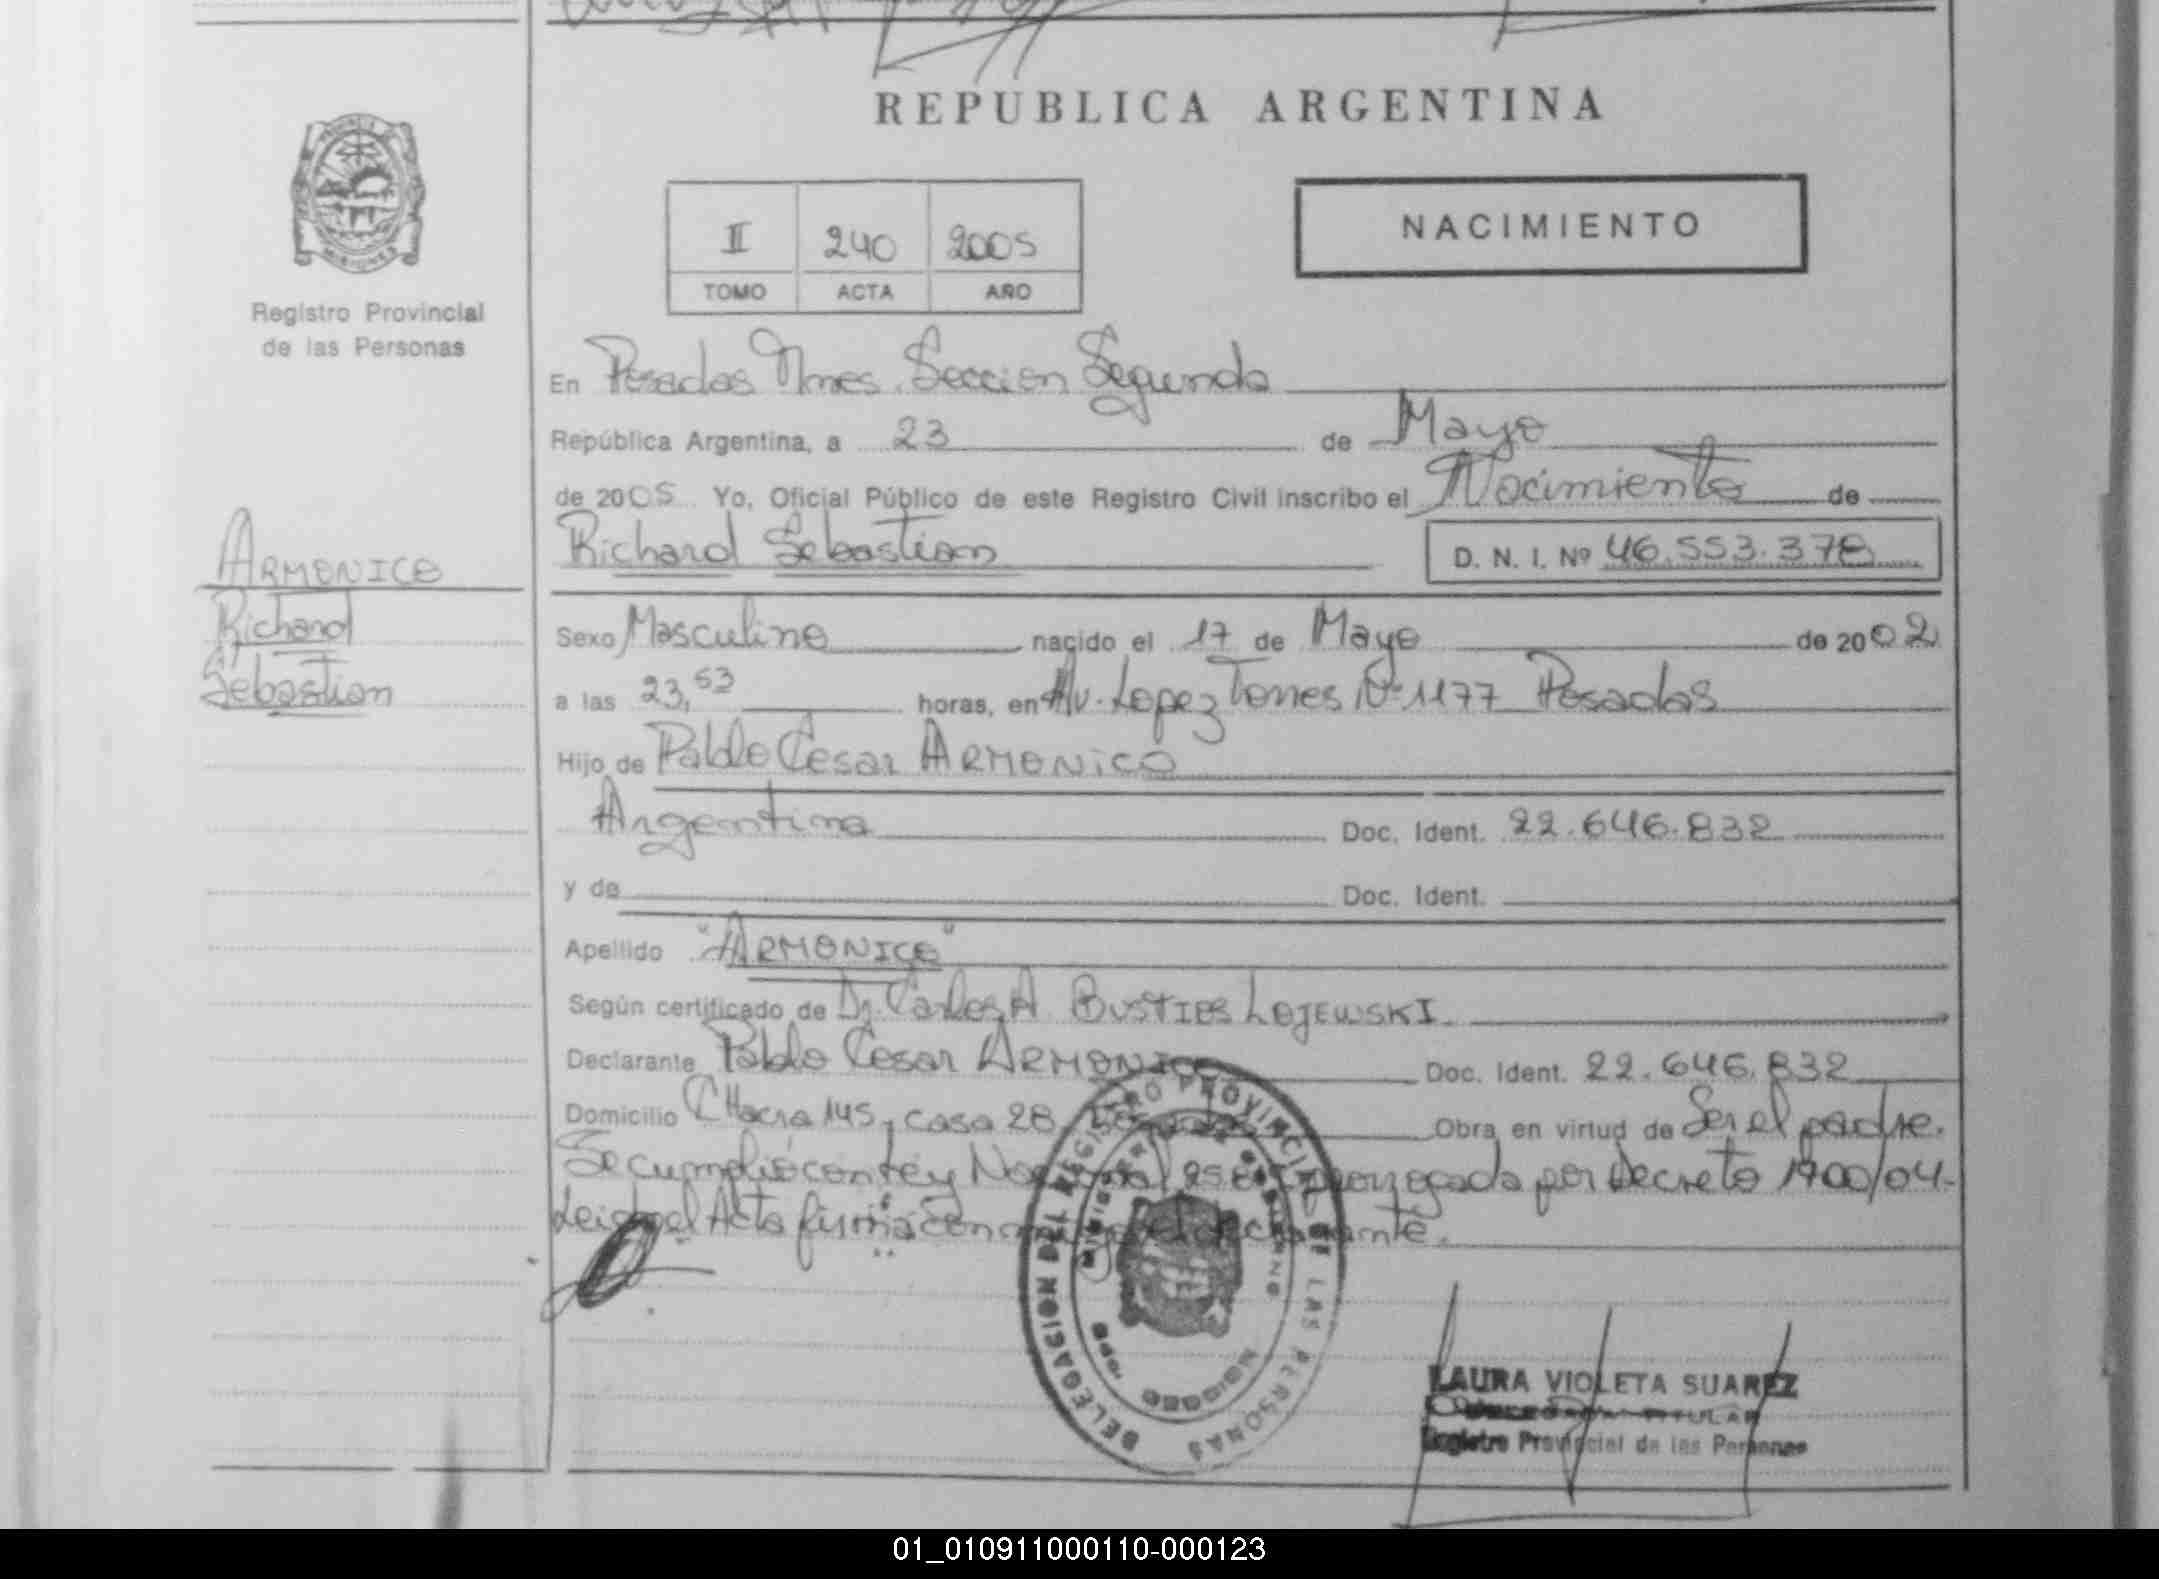 REPUBLICA ARGENTINA
Registro Provincial
de las Personas
II 240 2005
TOMO ACTA AÑO
NACIMIENTO
En Posadas Mnes. Seccion Segunda
República Argentina, a 23 de Mayo
de 2005 Yo, Oficial Público de este Registro Civil inscribo el Nacimiento de
Richard Sebastian D. N. I. Nº 46.553.378
ARMONICO
Richard
Sebastian
Sexo Masculino nacido el 17 de Mayo de 2002
a las 23,53 horas, en Av. Lopez Torres Nº 1177 Posadas
Hijo de Pablo Cesar ARMONICO
Argentina Doc. Ident. 22.646.832
y de Doc. Ident.
Apellido "ARMONICO"
Según certificado de Dr. Carlos A. BUSTIES LOJEWSKI.
Declarante Pablo Cesar ARMONICO Doc. Ident. 22.646.832
Domicilio CHacra 145, casa 28, Obra en virtud de Ser el padre.
Se cumplió con Ley Nacional prorrogada por Decreto 1700/04-
Leida el Acta firma conmigo el declarante.
DELEGACION DEL REGISTRO PROVINCIAL DE LAS PERSONAS
MINISTERIO DE GOBIERNO
LAURA VIOLETA SUAREZ
TITULAR
Registro Provincial de las Personas
01_010911000110-000123